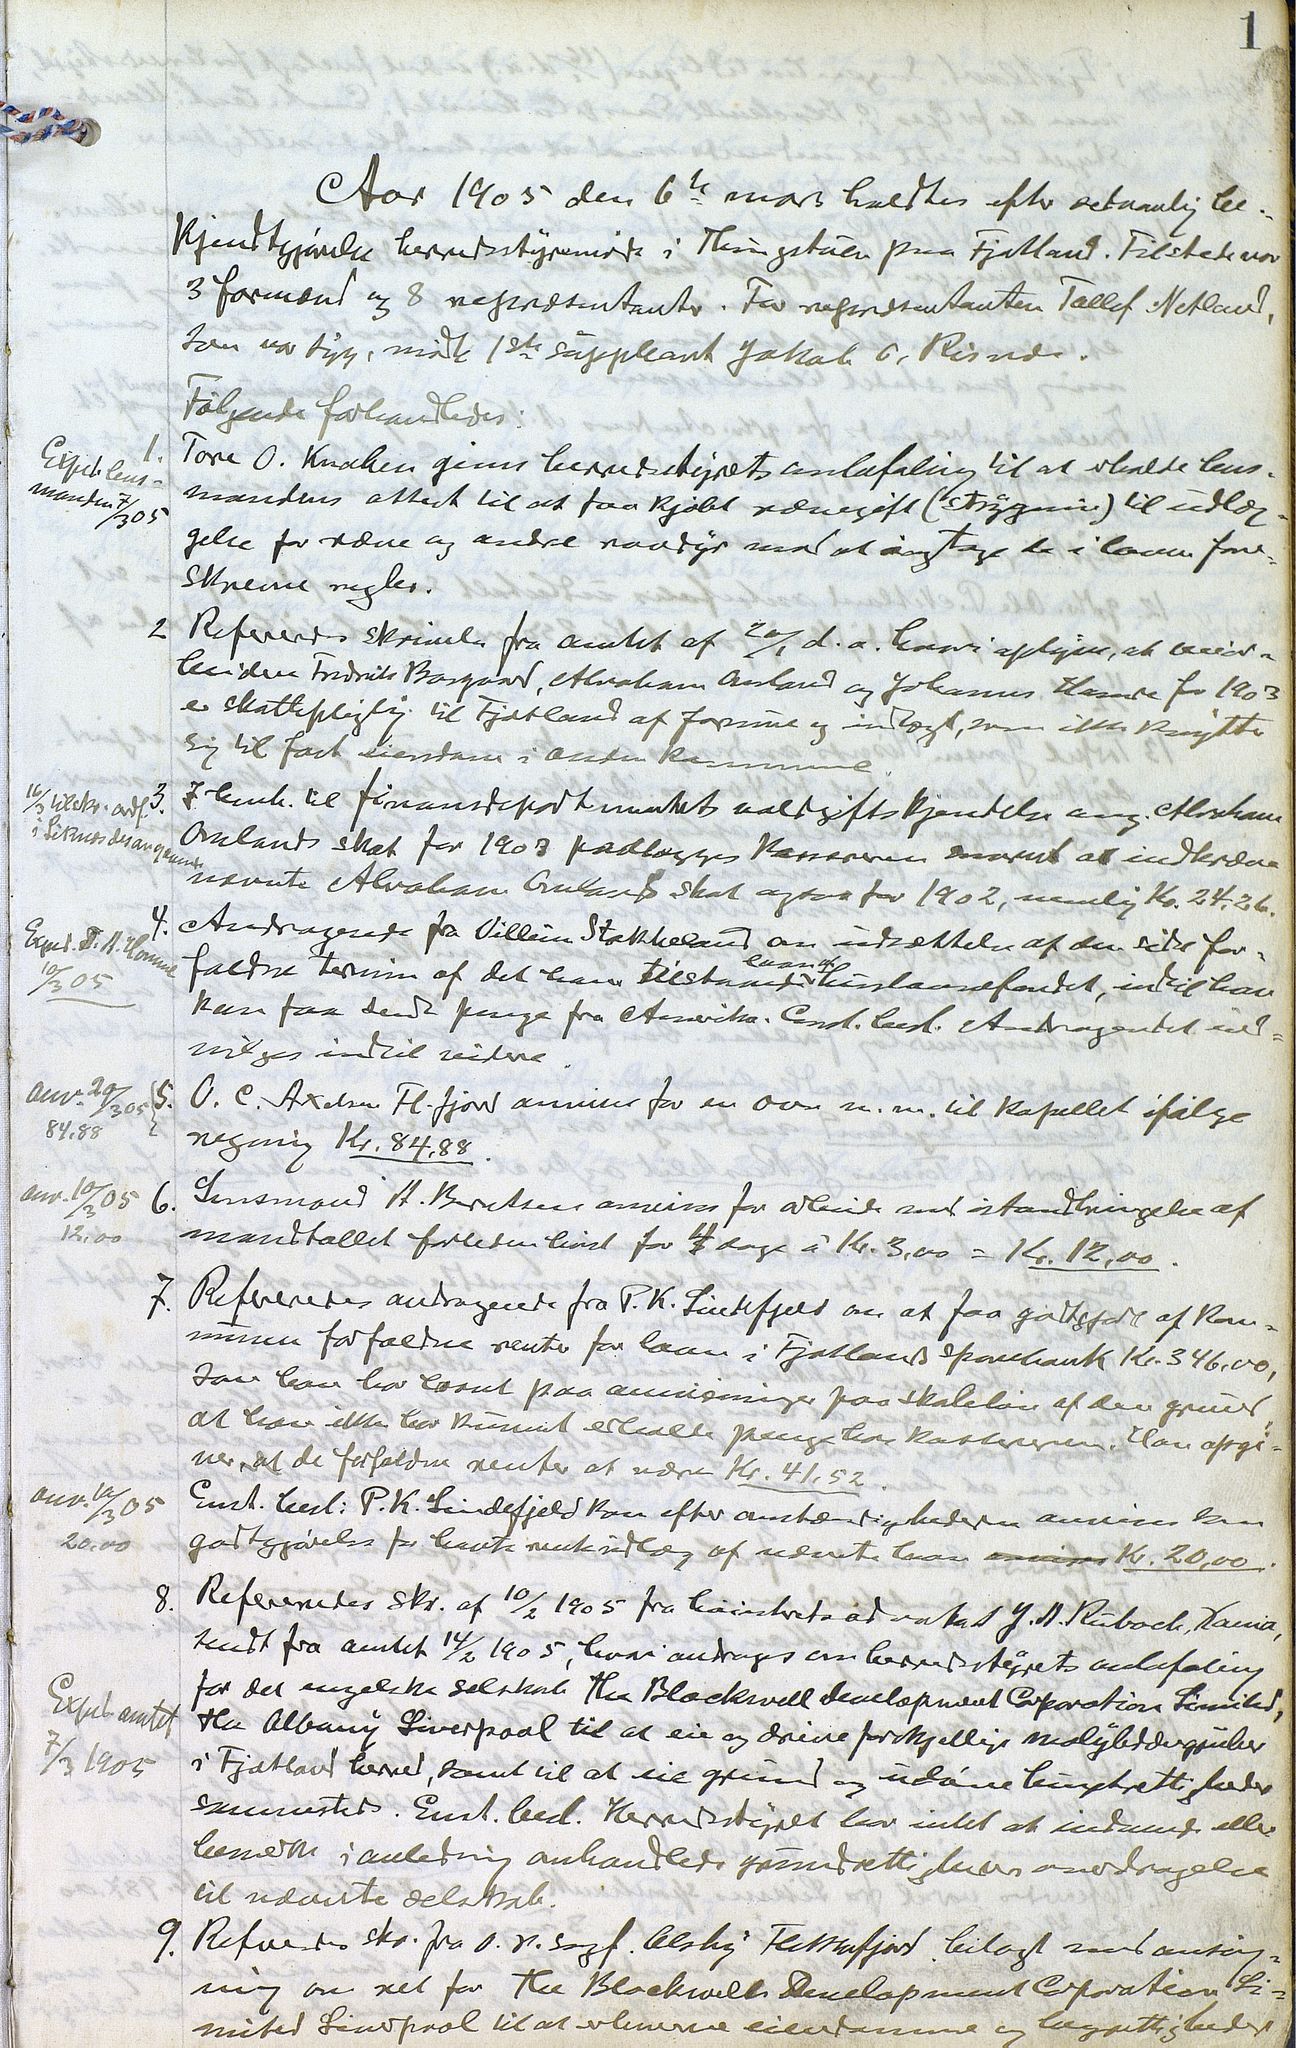 1
Aar 1905 den 6te mars holdtes efter sedvanlig be-
kjendtgjørelse herredsstyremøde i Thingstuen paa Fjotland. Tilstede var
3 formænd og 8 repræsentanter. For repræsentanten Tallef Netland,
som var syg, mødte 1ste suppleant Jakob O. Risnes.
Følgende forhandledes:
1. Tore O. Knaben gives herredsstyrets anbefaling til at erholde lens-
Exped. lens-
manden 7/3 05
mandens attest til at faa kjøbt rævegift (strygnin) til udlæg-
gelse for ræve og andre rovdyr mod at iagttage de i loven fore-
skrevne regler.
2 Referertes skrivelse fra amtet af 20/1 d. a. hvori oplyses, at
Fredrik Bosgaard, Abraham Omland og Johannes Hamre for 1903
er skattepligtig til Fjotland af formue og indtægt, som ikke knytter
sig til fast eiendom i anden kommune.
3. I henh. til finansdepartementets voldgiftskjendelse ang. Abraham
16/3
Omlands skat for 1903 paalægges kassereren snarest at inddrive
nævnte Abraham Omlands skat ogsaa for 1902, nemlig Kr. 24.26.
4. Andragende fra Villum Stakkeland om udsættelse af den sidst for-
Exped. T. A. Homme
10/3 05
faldne termin af det ham tilstaaede laan af husbankfondet, indtil han
kan faa sendt penge fra Amerika. Enst. besl. Andragendet ind-
vilges indtil videre.
5. O. C. Axelsen Fl. fjord anvises for en ovn m. m. til kapellet ifølge
anv. 20/3 05
84.88
regning Kr. 84,88.
6. Lensmand A. Berntsen anvises for arbeide med istandbringelse af
anv. 10/3 05
12.00
mandtallet forleden høst for 4 dage à Kr. 3,00 = Kr. 12,00.
7. Refereredes andragende fra P. K. Lindefjeld om at faa godtgjort af kom-
munen forfaldne renter for laan i Fjotlands sparebank Kr. 346,00,
som han har laant paa anvisninger paa skoleløn af den grund
at han ikke har kunnet erholde penge hos kassereren. Han opgi-
ver, at de forfaldne renter at være Kr. 41,52.
anv. 10/3 05
20.00
Enst. besl: P. K. Lindefjeld kan efter omstændighederne anvises som
godtgjørelse for havte renteudlæg af nævnte laan Kr. 20,00.
8. Refereredes skr. af 10/2 1905 fra høiesteretsadvokat J. A. Rubach, Xania,
sendt fra amtet 14/2 1905, hvori andrages om herredsstyrets anbefaling
for det engelske selskab The Blackwell Development Corporation Limited,
Exped. amtet
7/3 1905
the Albany Liverpool til at eie og drive forskjellige molybdængruber
i Fjotland herred, samt til at eie grund og udøve brugsrettigheder
sammesteds. Enst. besl. Herredsstyret har intet at indvende eller
bemerke i anledning omhandlede grundrettigheders overdragelse
til nævnte selskab.
9. Refereredes skr. fra o. r. sagf. Flekkefjord bilagt med ansøg-
ning om ret for The Blackwell Development Corporation Li-
mited Liverpool til at erhverve eiendomme og brugsrettigheder